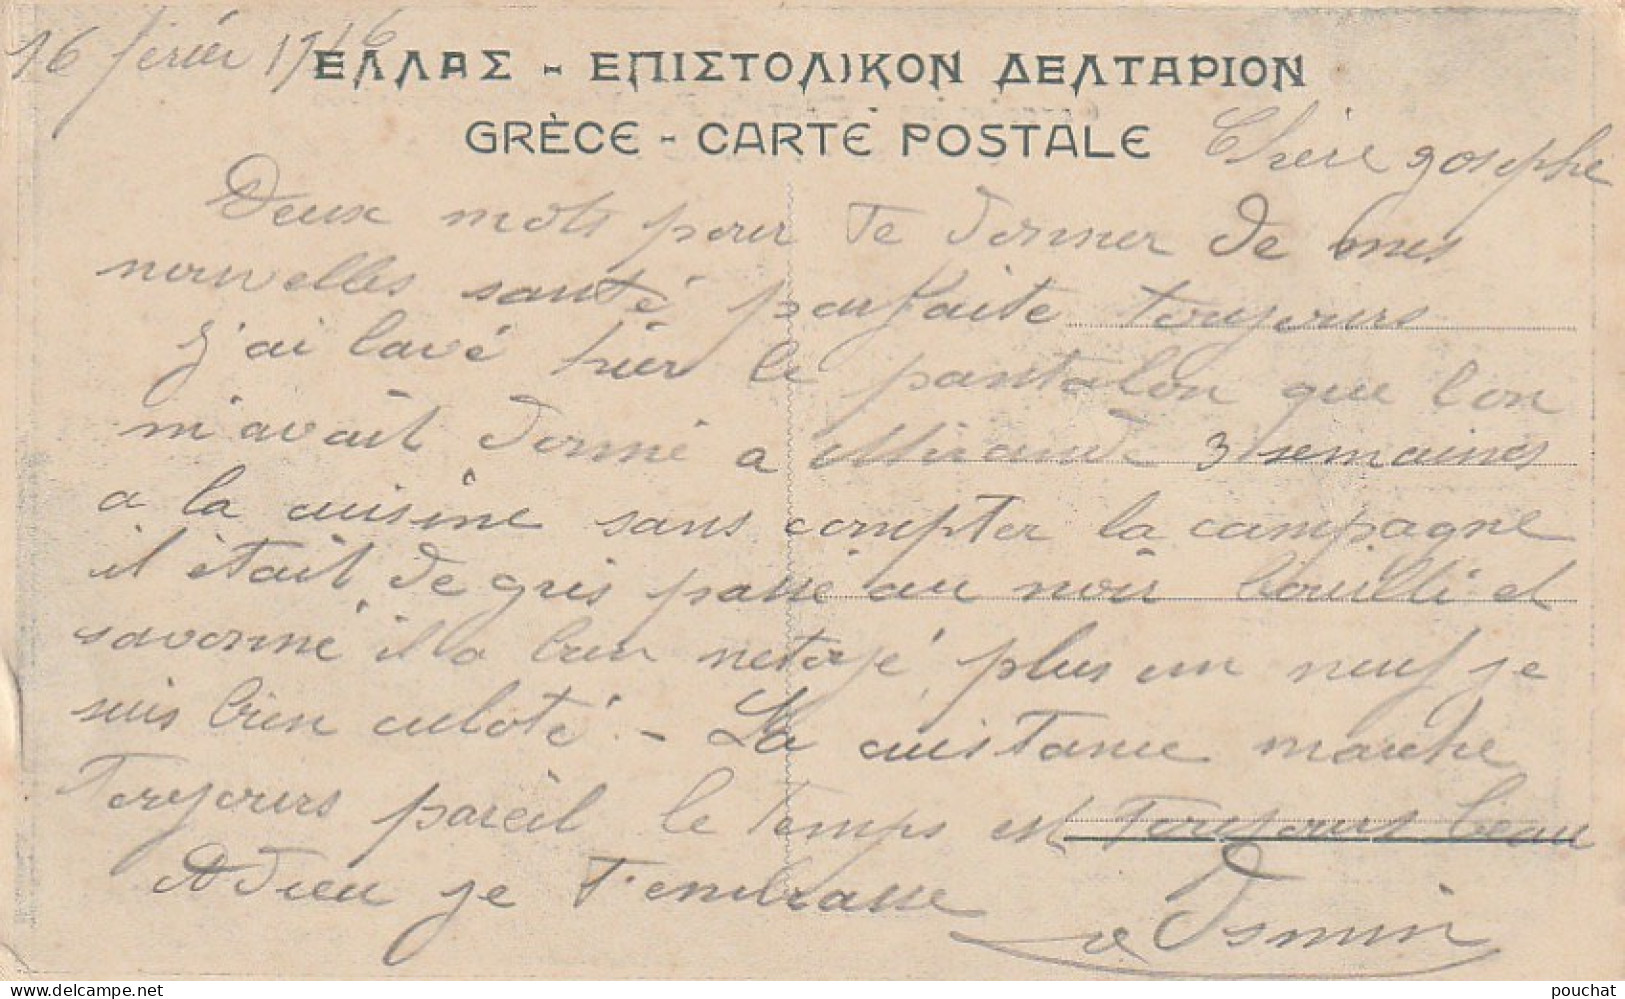 16 février 1916
ΕΛΛΑΣ - ΕΠΙΣΤΟΛΙΚΟΝ ΔΕΛΤΑΡΙΟΝ
GRÈCE - CARTE POSTALE
Chère Josephe
Deux mots pour te donner de mes
nouvelles santé parfaite toujours
j'ai lavé hier le pantalon que l'on
m'avait donné a Mirande 3 semaines
a la cuisine sans compter la campagne
il était de gris passé au noir bouilli et
savonné il a bien netoyé, plus un neuf je
suis bien culoté - La cuistance marche
toujours pareil le temps est toujours beau
Adieu je t'embrasse
pouchat